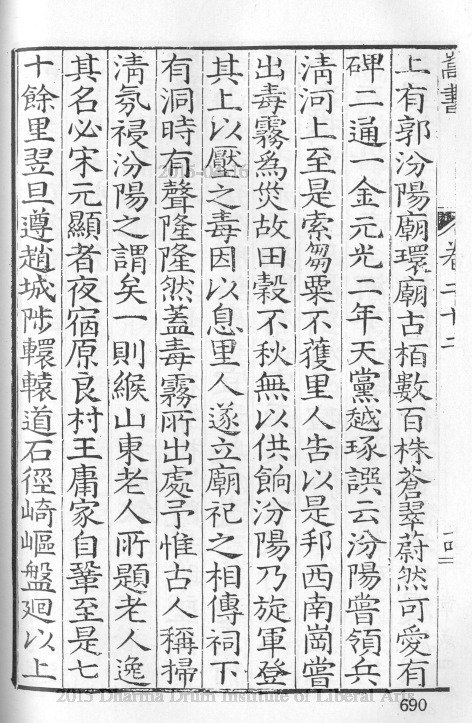 嵩書
卷二十二
上有郭汾陽廟環廟古栢數百株蒼翠蔚然可愛有
碑二通一金元光二年天黨越琢譔云汾陽嘗領兵
清河上至是索芻粟不獲里人告以是邦西南崗嘗
出毒霧為災故田穀不秋無以供餉汾陽乃旋軍登
其上以壓之毒因以息里人遂立廟祀之相傳祠下
有洞時有聲隆隆然蓋毒霧所出處予惟古人稱掃
清氛祲汾陽之謂矣一則緱山東老人所題老人逸
其名必宋元顯者夜宿原良村王庸家自鞏至是七
十餘里翌旦遵趙城陟轘轅道石徑崎嶇盤廻以上
690
2015 Dharma Drum Institute of Liberal Arts